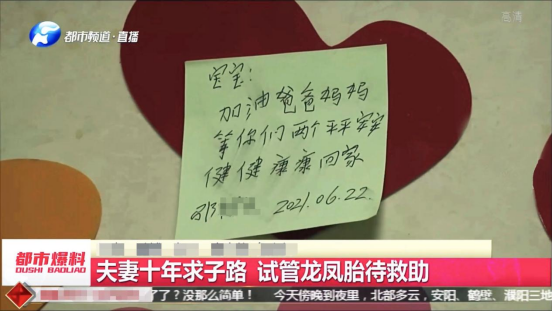 高清
都市频道·直播
宝宝：
加油爸爸妈妈
等你们两个平平安安
健健康康回家
2021.06.22.
都市爆料
DUSHI BAOLIAO
夫妻十年求子路 试管龙凤胎待救助
了了？没那么简单！ 今天傍晚到夜里，北部多云，安阳、鹤壁、濮阳三地